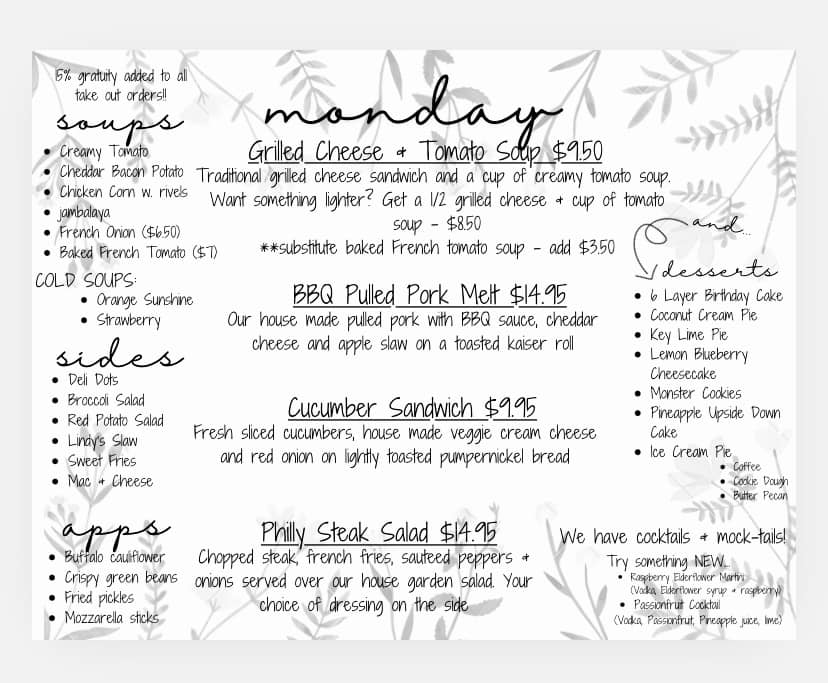 15% gratuity added to all
take out orders!!
soups
Creamy Tomato
Cheddar Bacon Potato
Chicken Corn w. rivels
jambalaya
French Onion ($6.50)
Baked French Tomato ($7)
COLD SOUPS:
Orange Sunshine
Strawberry
sides
Deli Dots
Broccoli Salad
Red Potato Salad
Lindy's Slaw
Sweet Fries
Mac & Cheese
apps
Buffalo cauliflower
Crispy green beans
Fried pickles
Mozzarella sticks
monday
Grilled Cheese & Tomato Soup $9.50
Traditional grilled cheese sandwich and a cup of creamy tomato soup.
Want something lighter? Get a 1/2 grilled cheese & cup of tomato
soup - $8.50
**substitute baked French tomato soup - add $3.50
BBQ Pulled Pork Melt $14.95
Our house made pulled pork with BBQ sauce, cheddar
cheese and apple slaw on a toasted kaiser roll
Cucumber Sandwich $9.95
Fresh sliced cucumbers, house made veggie cream cheese
and red onion on lightly toasted pumpernickel bread
Philly Steak Salad $14.95
Chopped steak, french fries, sauteed peppers &
onions served over our house garden salad. Your
choice of dressing on the side
and...
desserts
6 Layer Birthday Cake
Coconut Cream Pie
Key Lime Pie
Lemon Blueberry
Cheesecake
Monster Cookies
Pineapple Upside Down
Cake
Ice Cream Pie
Coffee
Cookie Dough
Butter Pecan
We have cocktails & mock-tails!
Try something NEW...
Raspberry Elderflower Martini
(Vodka, Elderflower syrup & raspberry)
Passionfruit Cocktail
(Vodka, Passionfruit, Pineapple juice, lime)